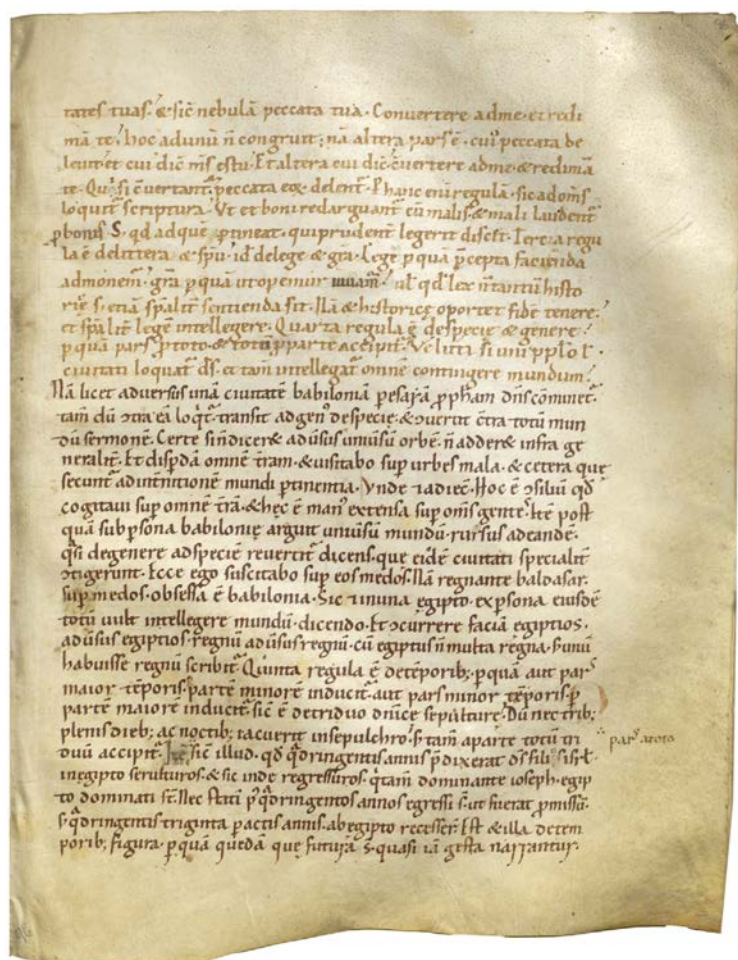 tates tuas. & sic̄ nebulā peccata tua. Convertere ad me. et redi
mā te. hoc ad unū n̄ congruit; nā altera pars ē. cui' peccata de
levit. et cui dic̄ m̄s es tu. Et altera cui dic̄ c̄vertere ad me. & redimā
te. Qui si c̄vertant̄. peccata eoꝝ delent̄. P hanc enī regulā. sic ad om̄s
loquit̄ scriptura. Ut et boni redarguant̄ cū malis. & mali laudent̄
ꝓ bonis S. qd ad quē ꝑtineat. qui prudent̄ legerit discet. Tercia regu
la ē de littera & sp̄u. id de lege & gr̄a. Lege ꝑ quā p̄cepta facienda
admonem̄. gr̄a ꝑ quā ut opemur iuvam̄. ul' qd lex n̄ tantū histo
ricę s. etiā sp̄alit̄ sentienda sit. Nā & historicę oportet fidē tenere.
et sp̄alit̄ legē intellegere. Quarta regula ē de specię & genere.
ꝑ quā pars ꝓ toto. & totū ꝓ parte accipit̄. Veluti si uni pplo l'
civitati loquat̄ d̄s. et tam̄ intellegat̄ omnē contingere mundum.
Nā licet adversus unā civitatē babiloniā ꝑ esaiā ꝓph̄am dn̄s cōminet̄.
tam̄ dū ↄtra eā loq̇t̄. transit ad gen' de specie. & ↄvertit c̄tra totū mun
dū sermonē. Certe si n̄ diceret adūsus univ̄sū orbē. n̄ adderet infra ge
neralit̄. Et disp̄dā omnē t̄ram. & visitabo sup urbes mala. & cetera que
secunt̄ ad intnitionē mundi ꝑtinentia. Vnde & adiec̄. Hoc ē ↄsiliū qd
cogitavi sup omnē t̄rā. & hęc ē man' extensa sup om̄s gentes. Itē post
quā sub ꝑsona babilonię arguit univ̄sū mundū. rursus ad eandē.
q̇si de genere ad speciē revertit̄ dicens. que eidē civitati specialit̄
ↄtigerunt. Ecce ego suscitabo sup eos medos. Nā regnante baldasar.
sup medos. obsessa ē babilonia. Sic & in una egipto. ex ꝑsona eiusdē
totū vult intellegere mundū. dicendo. Et ↄcurrere faciā egiptios.
adūsus egiptios. regnū adūsus regnū. cū egiptus n̄ multa regna. s. unū
habuisse regnū scribit̄. Quinta regula ē de tēporib; ꝑ quā aut pars
maior tēporis. partē minorē inducit̄. aut pars minor tēporis ꝑ
partē maiorē inducit̄. sic̄ ē de triduo dn̄ice sepulturę. Dū nec trib;
plenis dieb; ac noctib; iacuerit in sepulchro. s. tam̄ a parte totū tri
duū accipit̄. Itē sic̄ illud. qd q̇dringentis annis p̄dixerat d̄s filios isr̄l.
in egipto servituros. & sic inde regressuros. q̇ tam̄ dominante ioseph. egip
to dominati s̄t. Nec statī p' q̇dringentos annos egressi s̄. ut fuerat ꝓmissū.
s. q̇dringentis triginta ꝑactis annis. ab egipto recesser̄. Est & illa de tem
porib; figura. ꝑ quā quedā que futura s̄. quasi iā gesta narrantur.
pars a toto